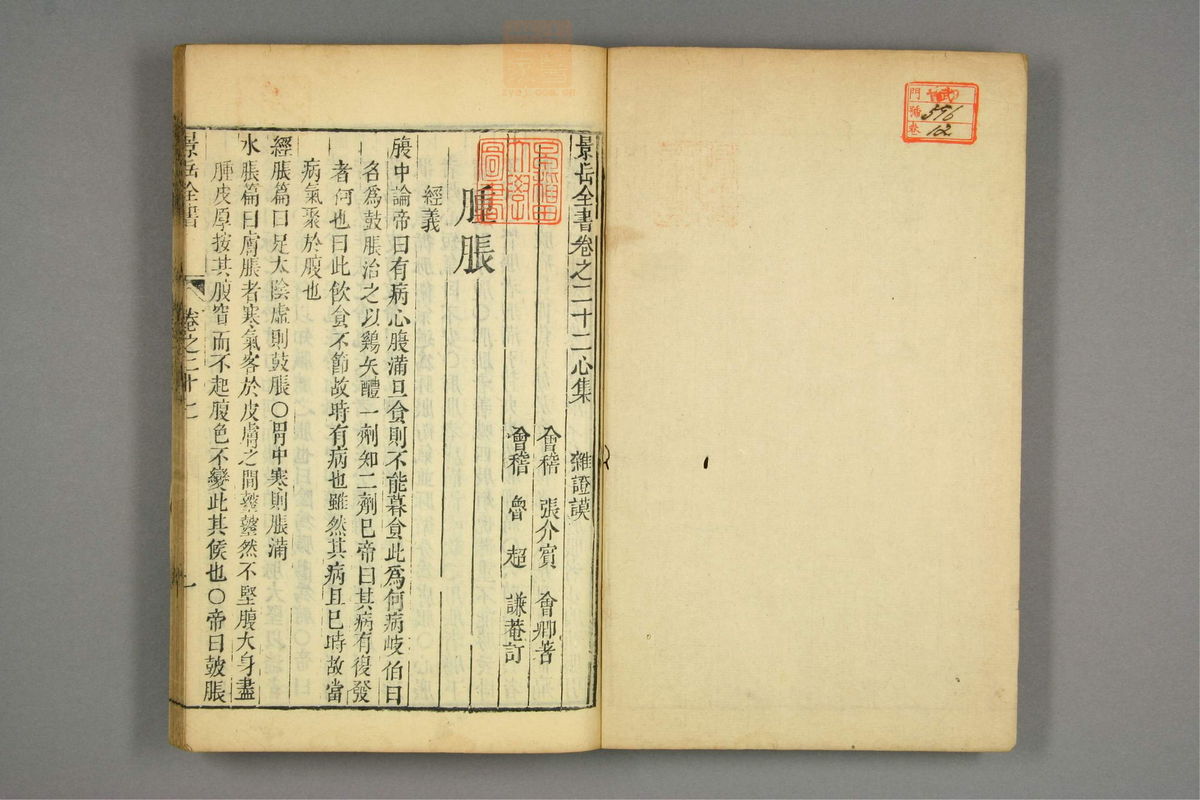 門 號 卷
596
12
景岳全書卷之二十二心集 雜證謨
會稽 張介賓 會卿著
會稽 魯 超 謙菴訂
早稻田大學圖書
腫脹
經義
腹中論帝曰有病心腹滿旦食則不能暮食此為何病岐伯曰
名為鼓脹治之以鷄矢醴一劑知二劑已帝曰其病有復發
者何也曰此飲食不節故時有病也雖然其病且已時故當
病氣聚於腹也
經脹篇曰足太陰虛則鼓脹○胃中寒則脹滿
水脹篇曰膚脹者寒氣客於皮膚之間鼞鼞然不堅腹大身盡
腫皮厚按其腹窅而不起腹色不變此其候也○帝曰鼓脹
景岳全書 卷之二十二 一